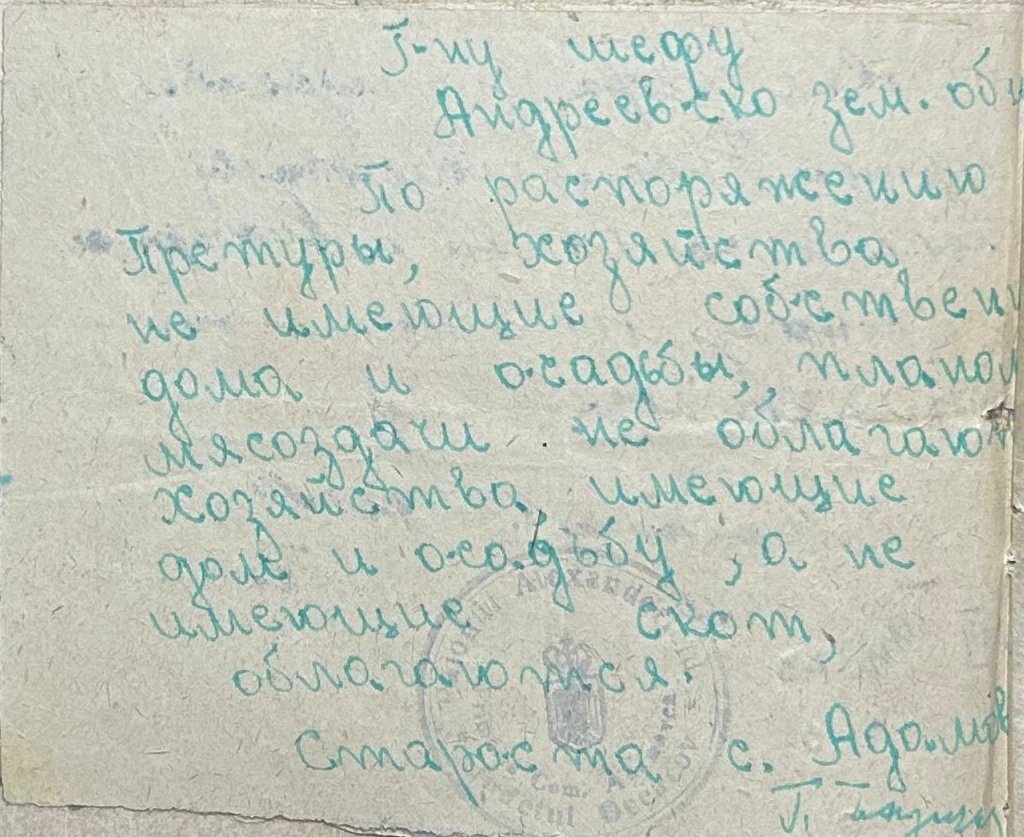 Г-ну шефу
Андреевско зем. общ
По распоряжению
Претуры, хозяйства,
не имеющие собствен
дома и осадьбы, планом
мясоздачи не облагают
хозяйства, имеющие
дом и осадьбу, а не
имеющие скот,
облагаются.
Староста с. Адамов
Alexander
Com.